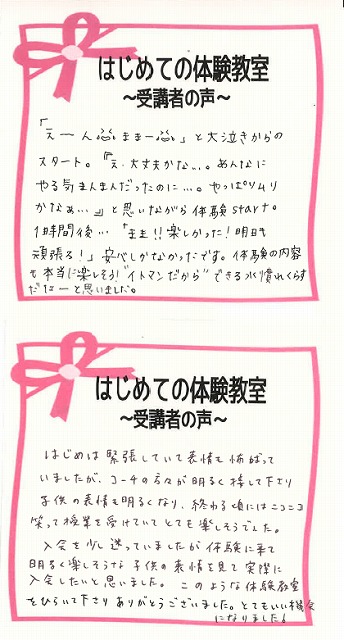 はじめての体験教室
～受講者の声～
「えーん ままー 」と大泣きからの
スタート。『え、大丈夫かな…。あんなに
やる気まんまんだったのに…。やっぱりムリ
かなぁ…』と思いながら体験start。
1時間後…「ママ!!楽しかった！明日も
頑張る！」安心しかなかったです。体験の内容
も本当に楽しそう！"イトマンだから"できる水慣れくらす
だなーと思いました。
はじめての体験教室
～受講者の声～
はじめは緊張していて表情も怖ばって
いましたが、コーチの方々が明るく接して下さり
子供の表情も明るくなり、終わる頃にはニコニコ
笑って授業を受けていてとても楽しそうでした。
入会を少し迷っていましたが体験に来て
明るく楽しそうな子供の表情を見て実際に
入会したいと思いました。このような体験教室
をひらいて下さりありがとうございました。とてもいい機会
になりました！